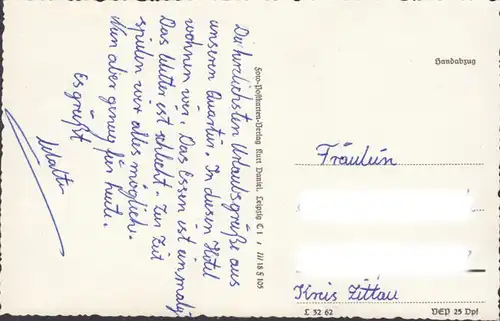 Die herzlichsten Urlaubsgrüße aus
unserem Quartier. In diesem Hotel
wohnen wir. Das Essen ist einmalig.
Das Wetter ist schlecht. Zur Zeit
spielen wir alles mögliche.
Nun aber genug für heute.
Es grüßt
Walter
Foto-Postkarten-Verlag Kurt Daniel, Leipzig C 1 / III 18 8 105
Handabzug
Fräulein
Kreis Zittau
L 32 62
VEP 25 Dpf